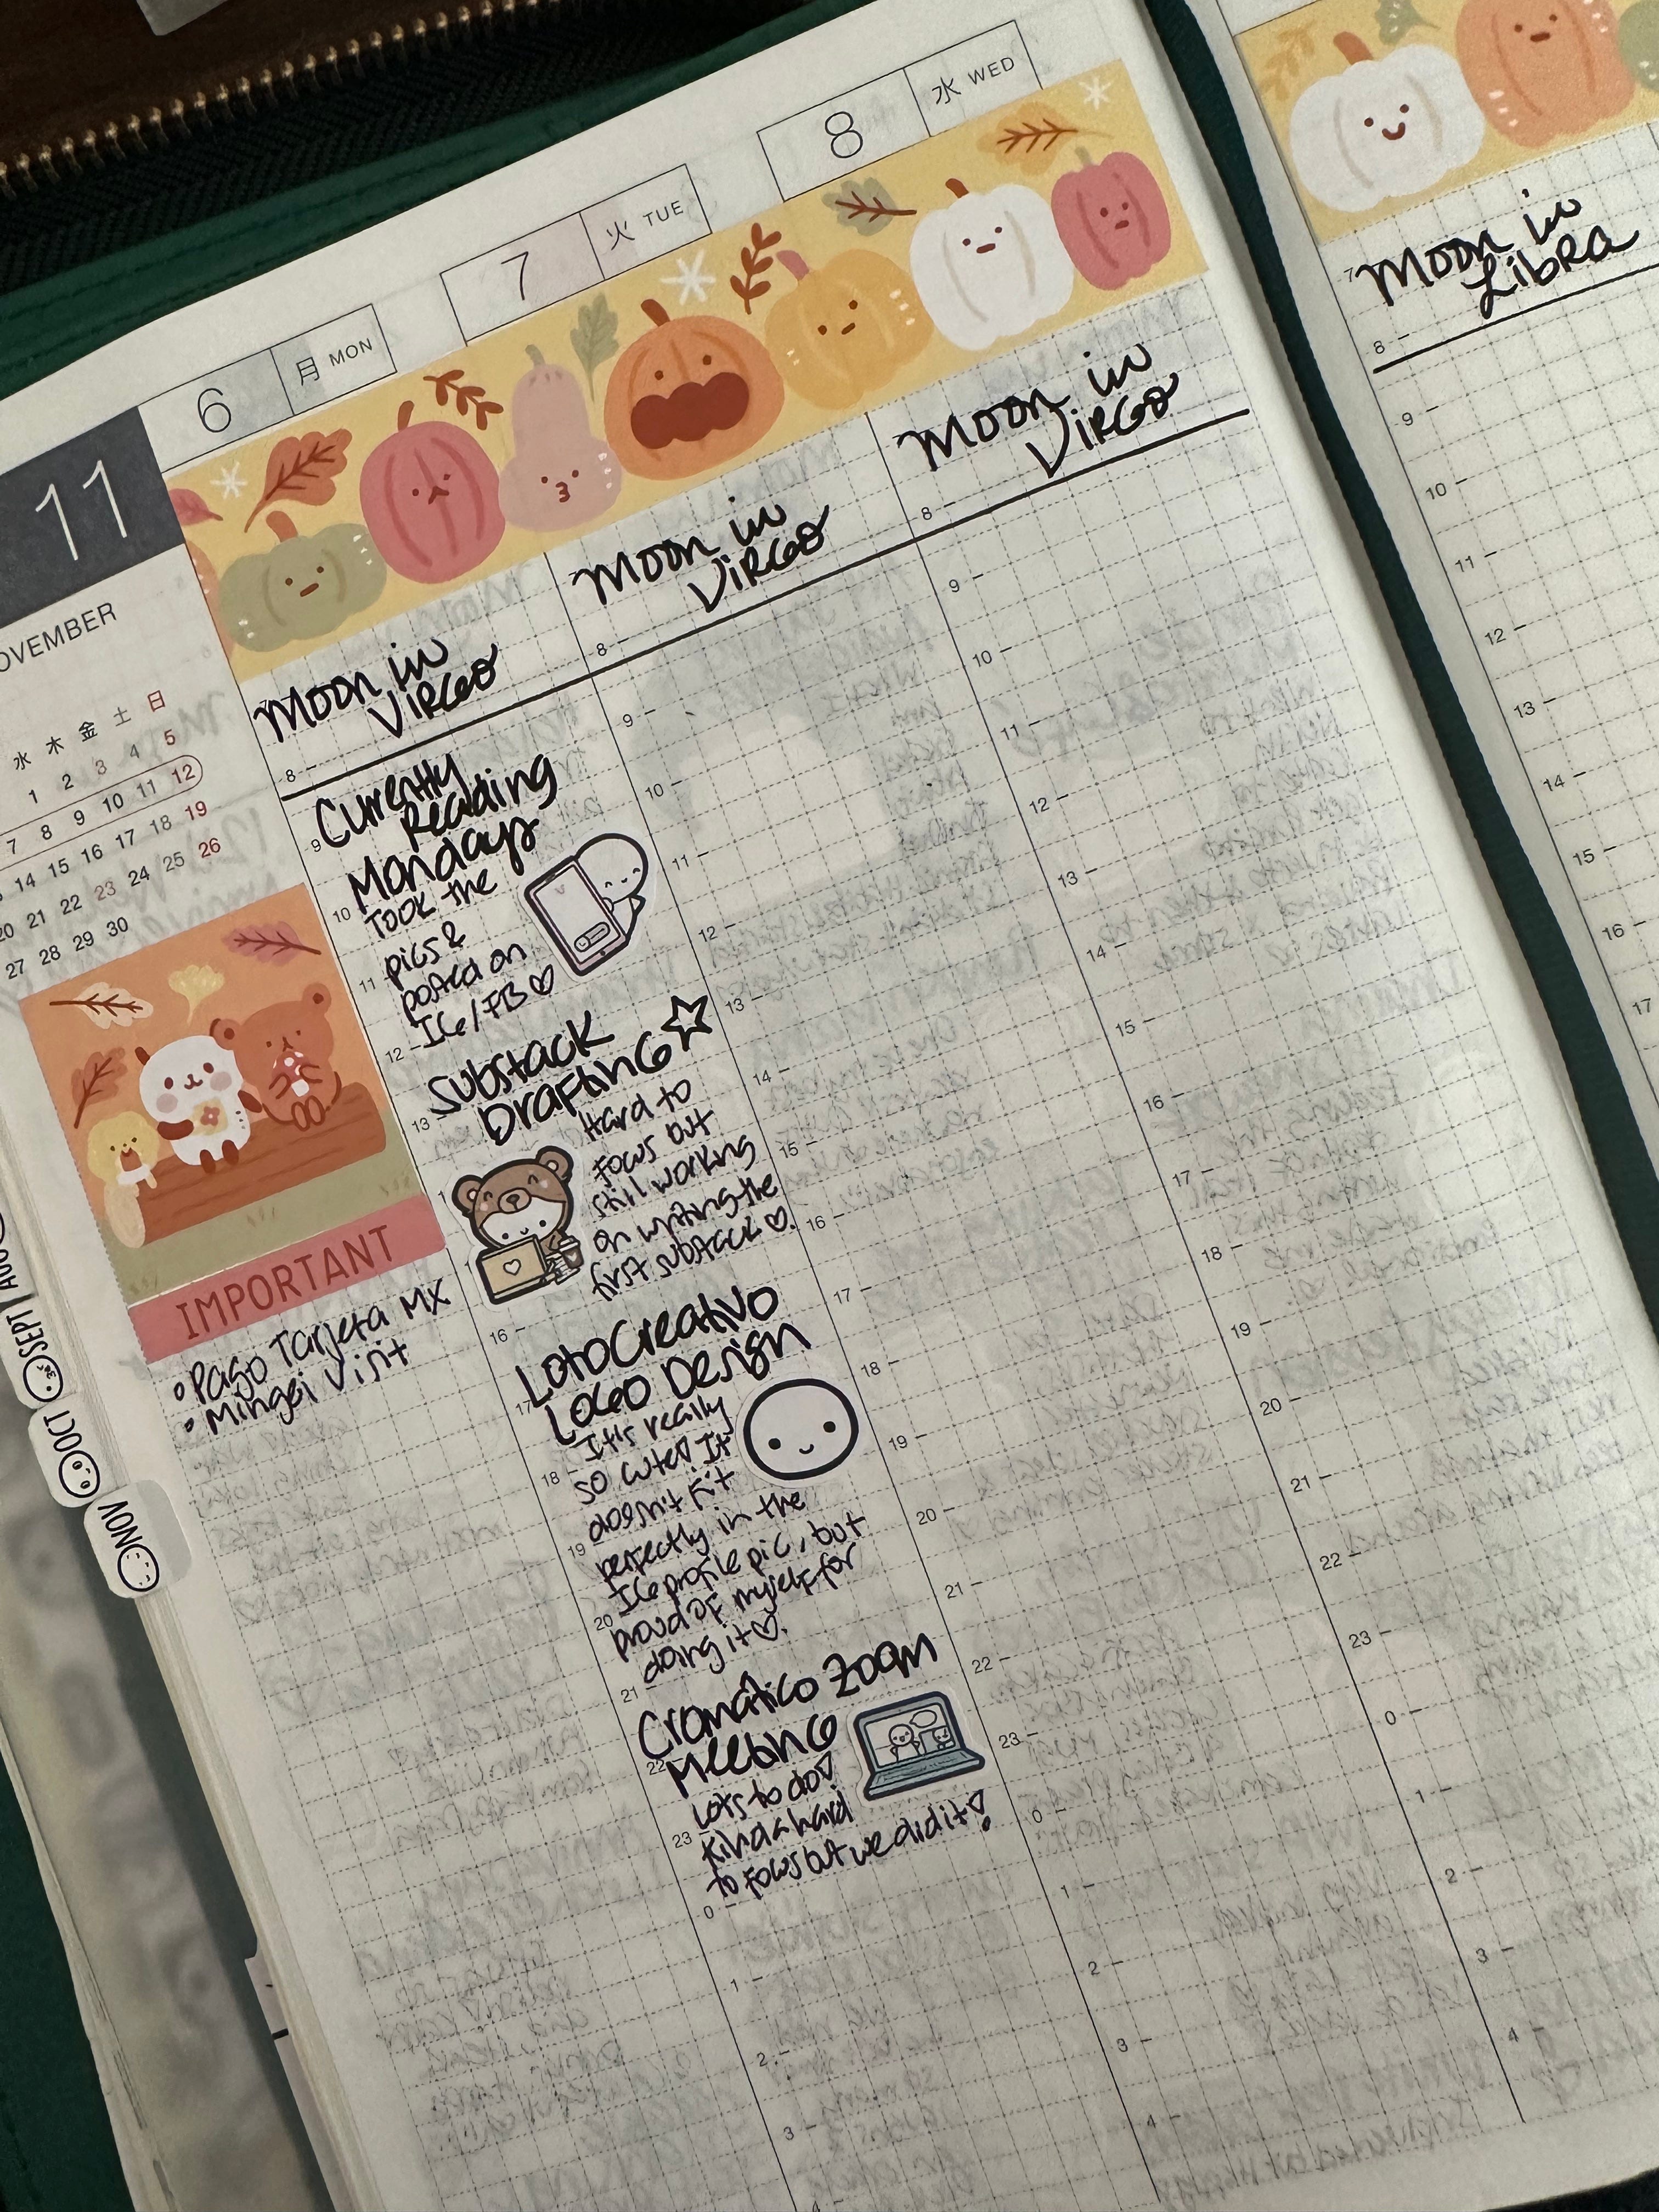 6 月 MON
7 火 TUE
8 水 WED
11
OVEMBER
水 木 金 土 日
1 2 3 4 5
7 8 9 10 11 12
14 15 16 17 18 19
20 21 22 23 24 25 26
27 28 29 30
IMPORTANT
• Pago Tarjeta MX
• Mingei Visit
AUG
SEPT
OCT
NOV
Moon in
Virgo
8
9
10
11
12
13
16
17
18
19
20
21
22
23
0
1
2
3
4
Currently
Reading
Mondays
Took the
pics &
posted on
IG/FB ♡
Substack
Drafting ☆
Hard to
focus but
still working
on writing the
first substack ♡.
LotoCreativo
Logo Design
It's really
so cute! It
doesn't fit
perfectly in the
IG profile pic, but
proud of myself for
doing it ♡.
Cromático Zoom
Meeting
Lots to do!
Kinda hard
to focus but we did it!
Moon in
Virgo
8
9
10
11
12
13
14
15
16
17
18
19
20
21
22
23
0
1
2
3
4
Moon in
Virgo
8
9
10
11
12
13
14
15
16
17
18
19
20
21
22
23
0
1
2
3
4
Moon in
Libra
7
8
9
10
11
12
13
14
15
16
17